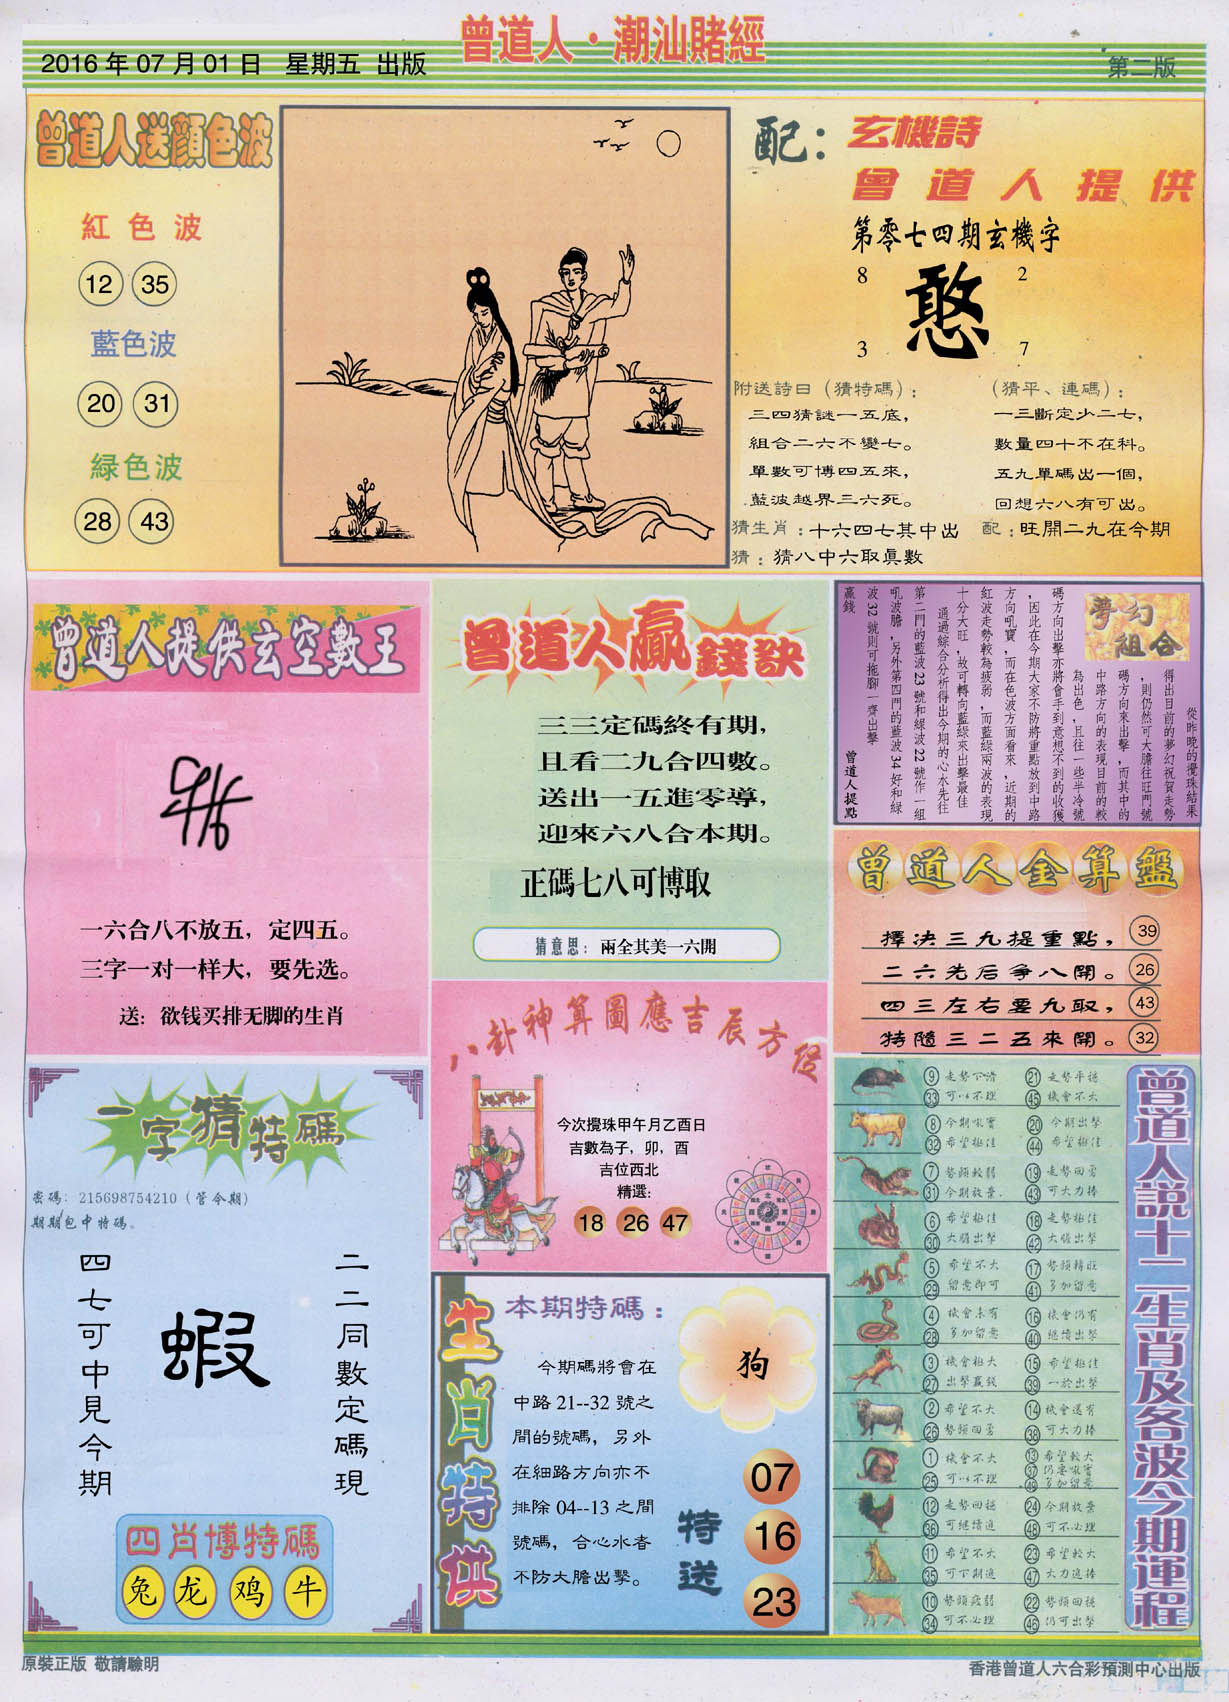 曾道人·潮汕賭經
2016 年 07 月 01 日 星期五 出版
第二版
曾道人送顏色波
紅色波
12 35
藍色波
20 31
緑色波
28 43
配：玄機詩
曾道人提供
第零七四期玄機字
8 2
憨
3 7
附送詩曰（猜特碼）：
三四猜謎一五底，
組合二六不變七。
單數可博四五來，
藍波越界三六死。
（猜平、連碼）：
一三斷定少二七，
數量四十不在科。
五九單碼出一個，
回想六八有可出。
猜生肖：十六四七其中出
配：旺開二九在今期
猜：猜八中六取眞數
曾道人提供玄空數王
一六合八不放五，定四五。
三字一对一样大，要先选。
送：欲钱买排无脚的生肖
曾道人贏錢訣
三三定碼終有期，
且看二九合四數。
送出一五進零導，
迎來六八合本期。
正碼七八可博取
猜意思：兩全其美一六開
夢幻組合
從昨晚的攪珠結果
得出目前的夢幻祝賀走勢
，則仍然可大膽往旺門號
碼方向來出擊，而其中的
中路方向的表現目前的較
為出色，且往一些半冷號
碼方向出擊亦將會手到意想不到的收獲
，因此在今期大家不防將重點放到中路
方向吼寶，而在色波方面看來，近期的
紅波走勢較為疲弱，而藍綠兩波的表現
十分大旺，故可轉向藍綠來出擊最佳
通過綜合分析得出今期的心水先往
第二門的藍波 23 號和綠波 22 號作一組
吼波膽，另外第四門的藍波 34 好和綠
波 32 號則可拖腳一齊出擊
贏錢
曾道人提點
曾道人金算盤
擇決三九提重點， 39
二六先后爭八開。 26
四三左右要九取， 43
特隨三二五來開。 32
八卦神算圖應吉辰方位
今次攪珠甲午月乙酉日
吉數為子，卯，酉
吉位西北
精選：
18 26 47
一字猜特碼
密碼：215698754210（管今期）
期期包中特碼。
四七可中見今期
蝦
二二同數定碼現
四肖博特碼
兔 龙 鸡 牛
生肖特供
本期特碼：
狗
今期碼將會在
中路 21--32 號之
間的號碼，另外
在細路方向亦不
排除 04--13 之間
號碼，合心水者
不防大膽出擊。
特送
07
16
23
曾道人説十二生肖及各波今期運程
9 走勢下滑 21 走勢平穩
33 可以不理 45 機會不大
8 今期吼寶 20 今期出擊
32 希望極佳 44 希望極佳
7 勢頭較弱 19 走勢回勇
31 今期放棄 43 可大力捧
6 希望極佳 18 走勢極佳
30 大膽出擊 42 大膽出擊
5 希望不大 17 勢頭轉旺
29 留意即可 41 多加留意
4 機會未有 16 機會仍有
28 多加留意 40 繼續出擊
3 機會極大 15 希望極佳
27 出擊贏錢 39 一於出擊
2 希望不大 14 機會還有
26 勢頭回勇 38 可大力捧
1 機會不大 13 希望較大
25 可以不理 37 仍要吼寶
49 多加留意
12 走勢回穩 24 今期放棄
36 可繼續追 48 可不必理
11 希望不大 23 希望較大
35 可下期追 47 大力追捧
10 勢頭疲弱 22 勢頭回穩
34 可不必理 46 仍可出擊
原裝正版 敬請驗明
香港曾道人六合彩預測中心出版